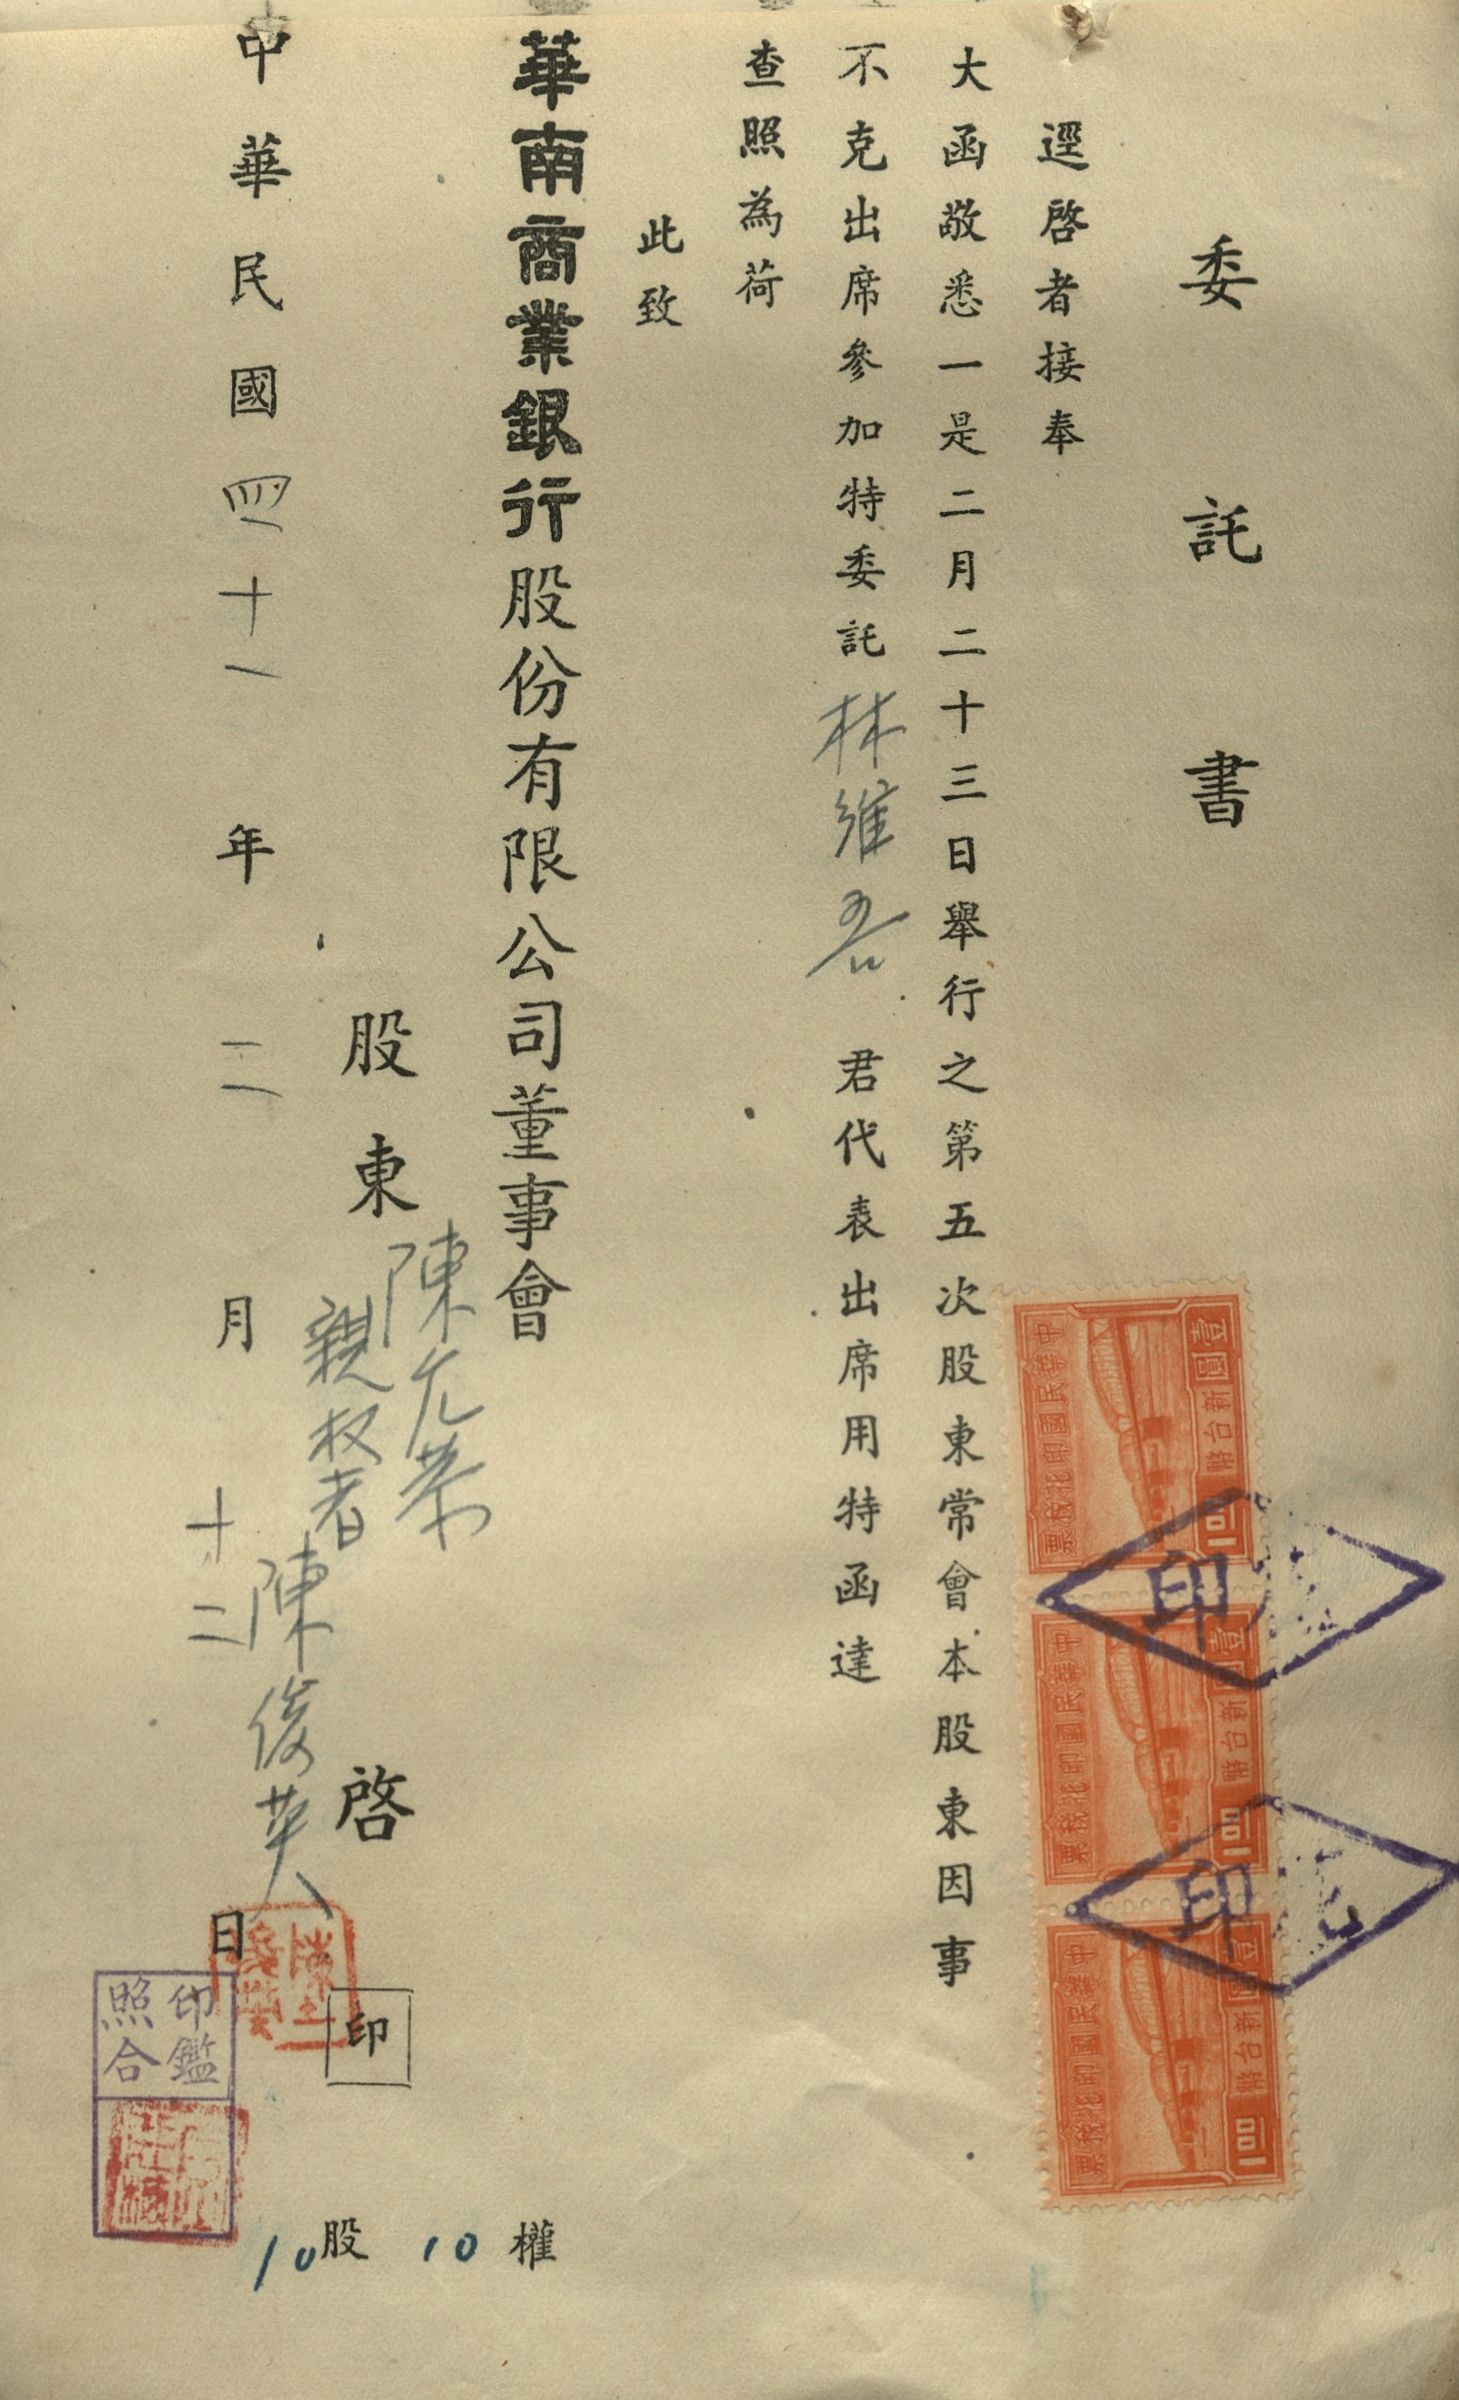 委託書
逕啓者接奉
大函敬悉一是二月二十三日舉行之第五次股東常會本股東因事
不克出席參加特委託林維吾君代表出席用特函達
查照為荷
此致
華南商業銀行股份有限公司董事會
股東陳允恭啓印
親权者陳俊英
中華民國四十一年二月十二日
10股 10權
印鑑
照合
壹圓新台幣
中華民國印花稅票
壹圓新台幣
中華民國印花稅票
壹圓新台幣
中華民國印花稅票
印
印